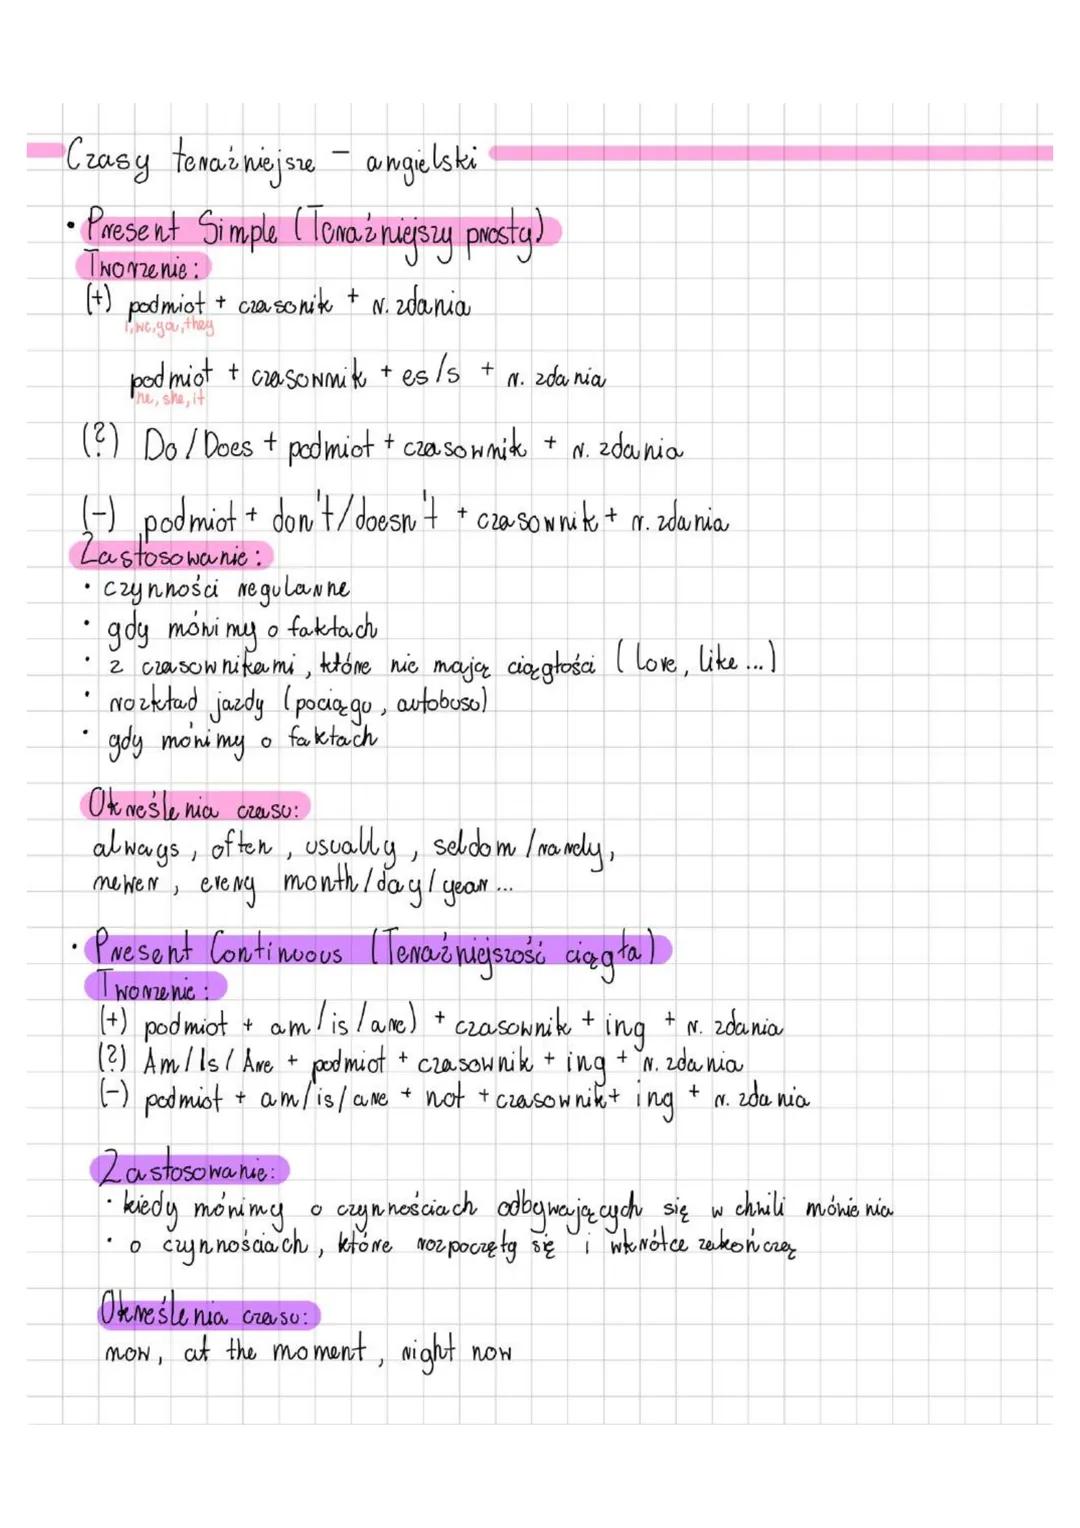 Czasy teraźniejsze - angielski
• Present Simple (Teraźniejszy prosty)
Tworzenie:
(+) podmiot + czasonik + r. zdania
I, we, you, they
podmiot + czasownik + es/s + r. zdania
he, she, it
(?) Do / Does + podmiot + czasownik + r. zdania
(-) podmiot + don't/doesn't + czasownik + r. zdania
Zastosowanie:
• czynności regularne
• gdy mówimy o faktach
• z czasownikami, które nie mają ciągłości (love, like ...)
• rozkład jazdy (pociągu, autobusu)
• gdy mówimy o faktach
Określenia czasu:
always, often, usually, seldom /rarely,
never, every month/day/year ...
• Present Continuous (Teraźniejszość ciągła)
Tworzenie:
(+) podmiot + am/is/are) + czasownik + ing + r. zdania
(?) Am/Is/Are + podmiot + czasownik + ing + r. zdania
(-) podmiot + am/is/are + not + czasownik+ ing + r. zdania
Zastosowanie:
• kiedy mówimy o czynnościach odbywających się w chwili mówienia
• o czynnościach, które rozpoczęły się i wkrótce zakończą
Określenia czasu:
now, at the moment, right now